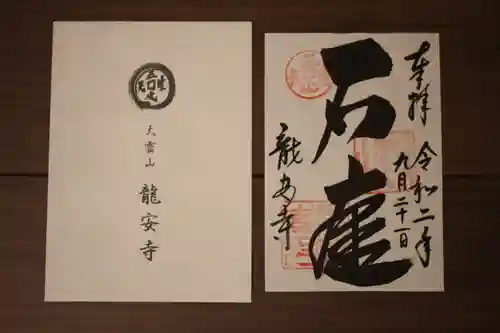 大雲山
龍安寺
奉拝
令和二年
九月二十一日
石庭
龍安寺